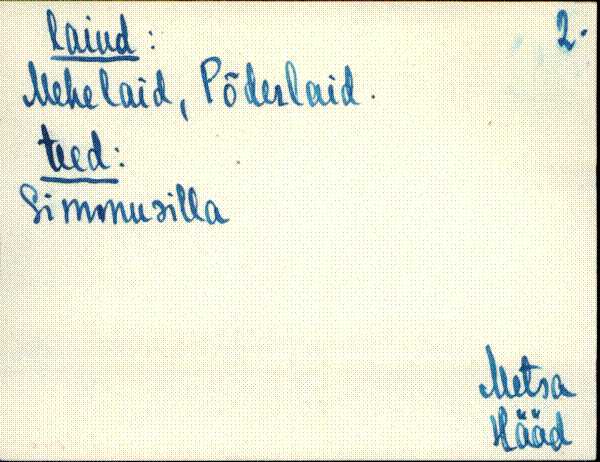 2.
laiud:
Mehelaid, Põderlaid.
teed:
Simmusilla
Metsa
Hääd